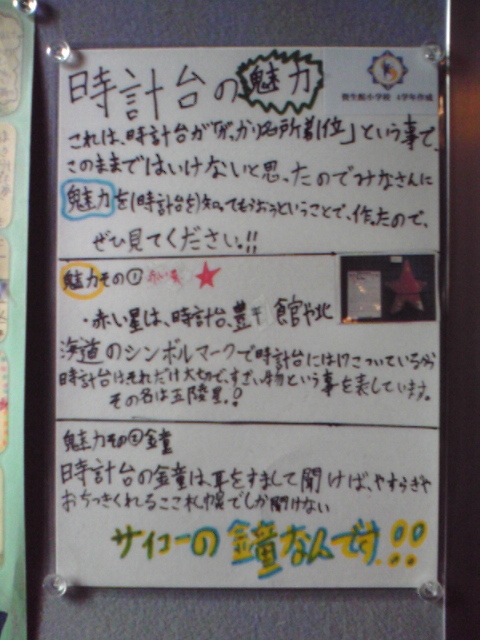 時計台の魅力
資生館小学校 4学年作成
これは、時計台が「がっかり名所第1位」という事で、
このままではいけないと思ったのでみなさんに
魅力を(時計台を)知ってもらおうということで、作ったので、
ぜひ見てください!!
魅力その① 赤い星 ★
・赤い星は、時計台、豊平館や北
海道のシンボルマークで時計台には17こついているから
時計台はそれだけ大切で、すごい物という事を表しています。
その名は五陵星!?
魅力その②金童
時計台の金童は、耳をすまして聞けば、やすらぎや
おちつきくれるここ札幌でしか聞けない
サイコーの金童なんです!!